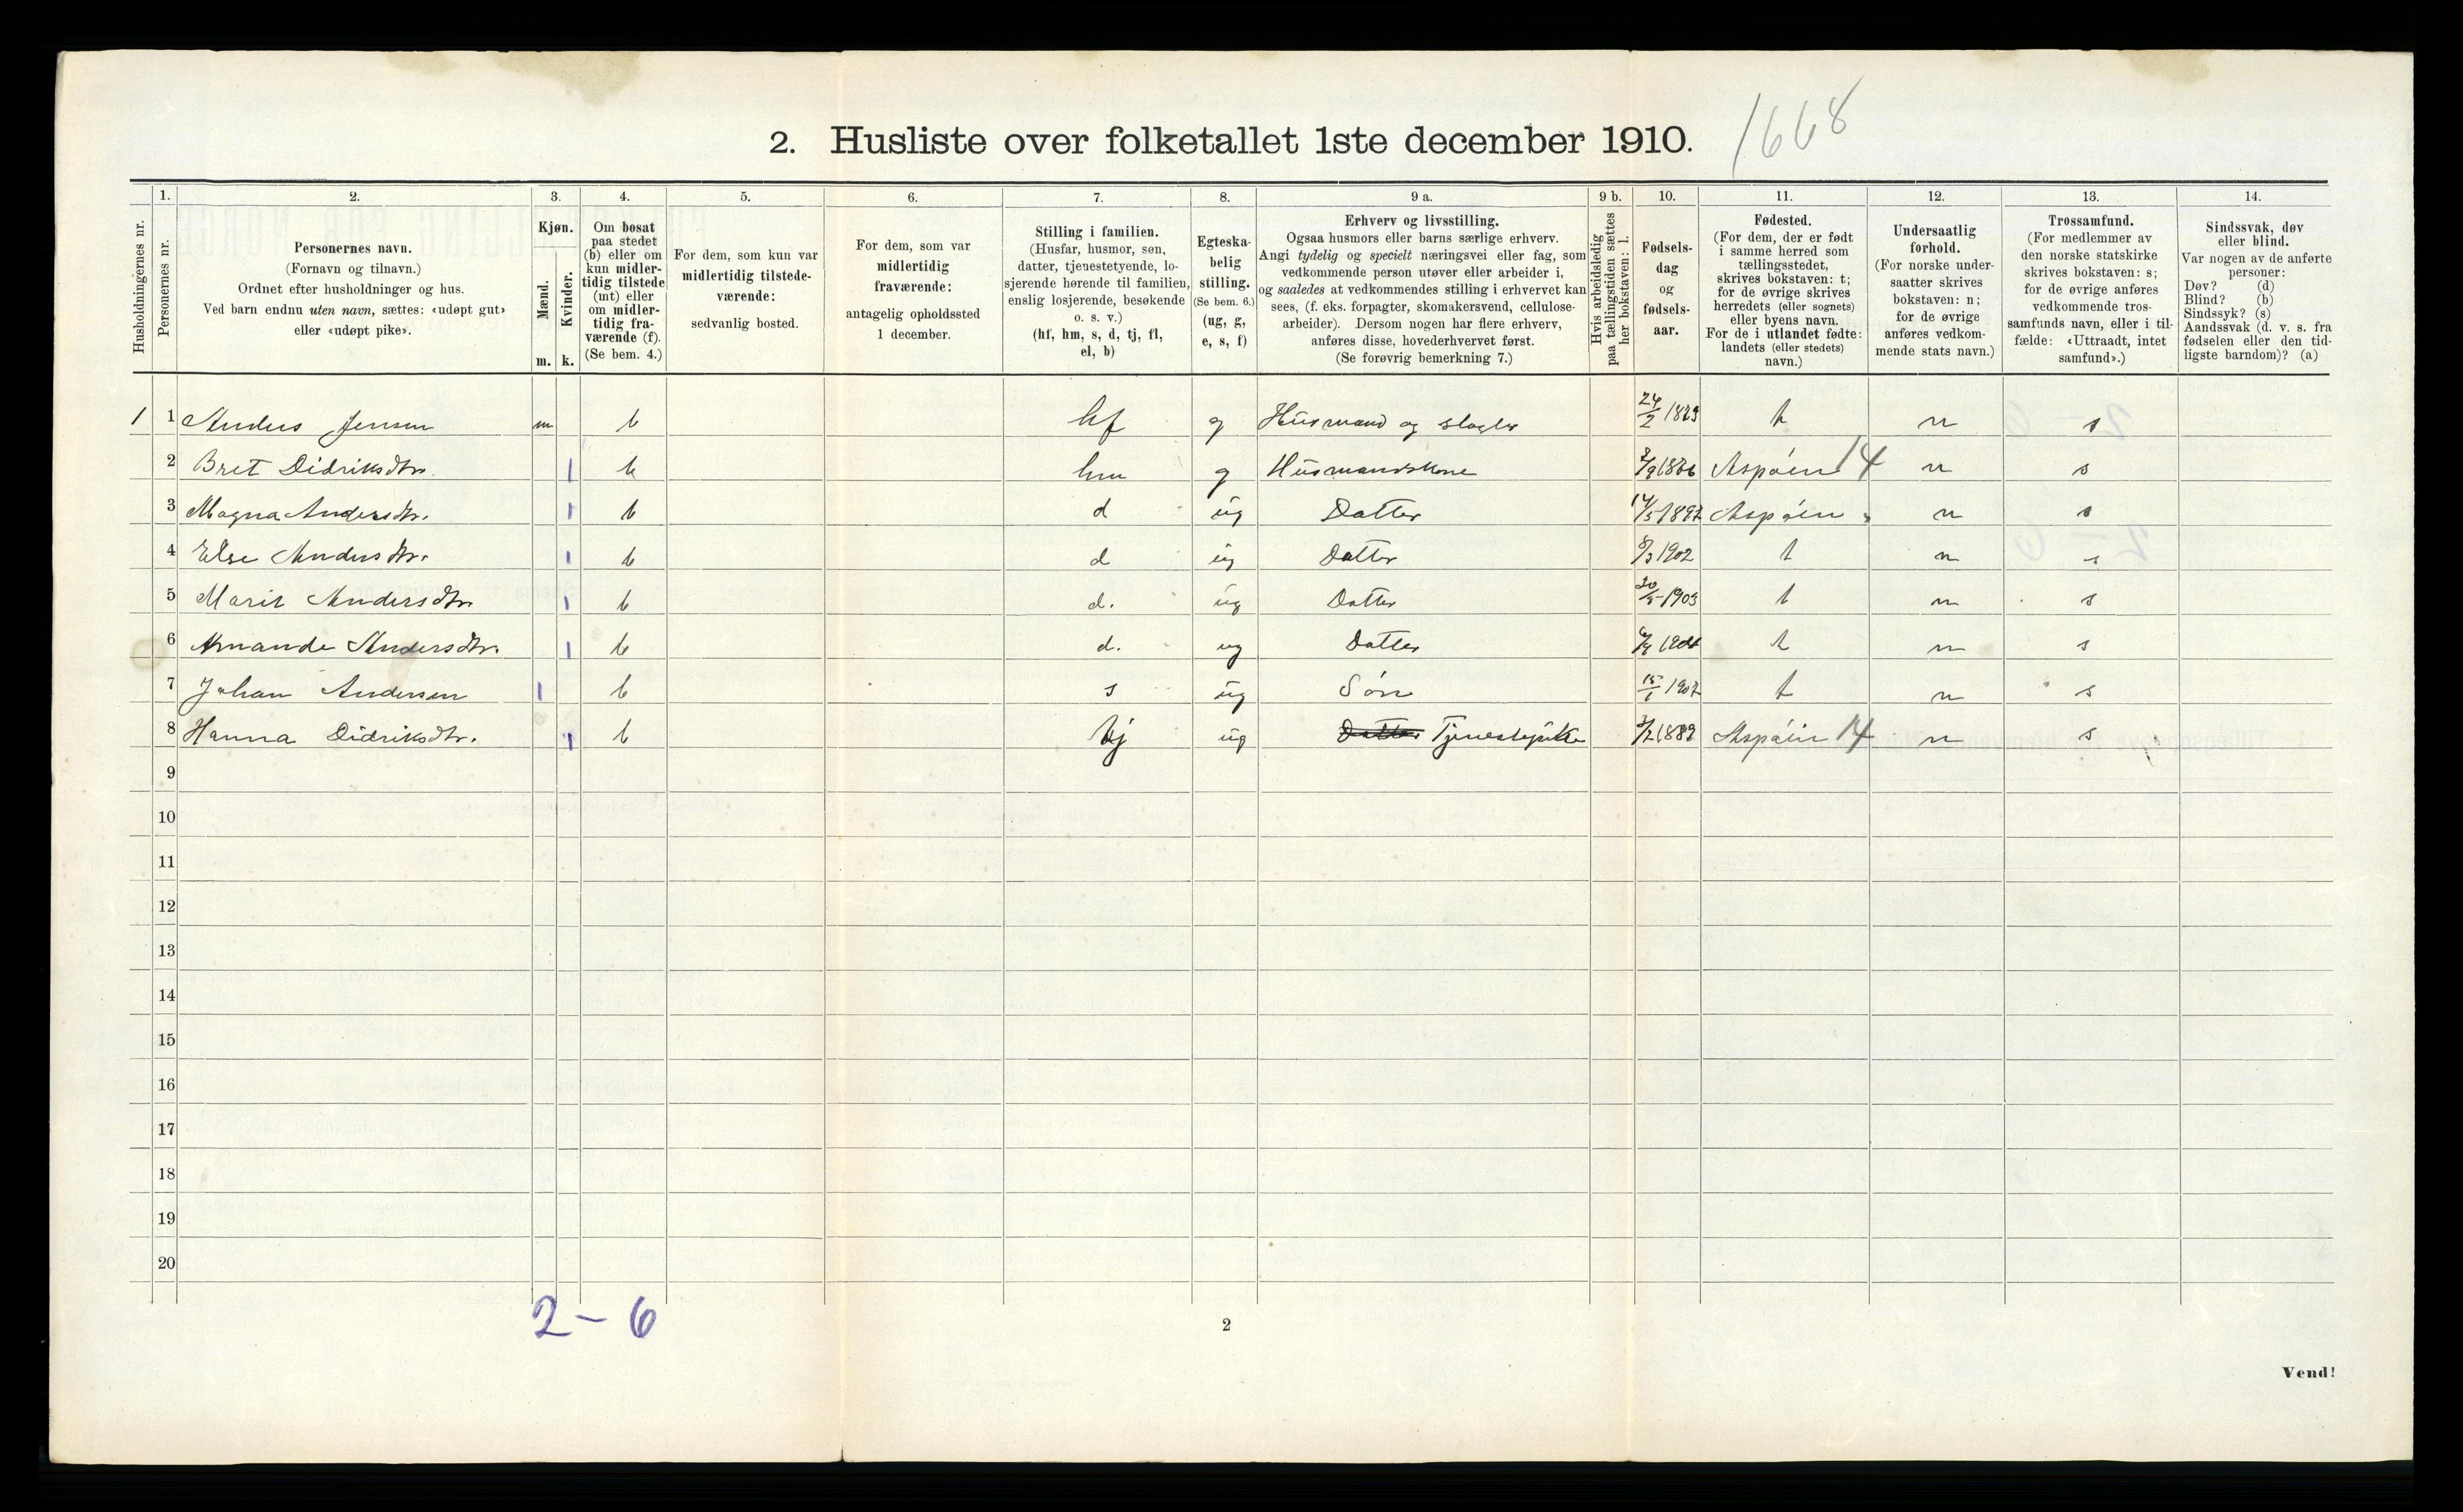 2. Husliste over folketallet 1ste december 1910.
1668
Husholdningernes nr.
1.
Personernes nr.
2.
Personernes navn.
(Fornavn og tilnavn.)
Ordnet efter husholdninger og hus.
Ved barn endnu uten navn, sættes: «udøpt gut»
eller «udøpt pike».
3.
Kjøn.
Mænd.
Kvinder.
m. k.
4.
Om bosat
paa stedet
(b) eller om
kun midler-
tidig tilstede
(mt) eller
om midler-
tidig fra-
værende (f).
(Se bem. 4.)
5.
For dem, som kun var
midlertidig tilstede-
værende:
sedvanlig bosted.
6.
For dem, som var
midlertidig
fraværende:
antagelig opholdssted
1 december.
7.
Stilling i familien.
(Husfar, husmor, søn,
datter, tjenestetyende, lo-
sjerende hørende til familien,
enslig losjerende, besøkende
o. s. v.)
(hf, hm, s, d, tj, fl,
el, b)
8.
Egteska-
belig
stilling.
(Se bem. 6.)
(ug, g,
e, s, f)
9 a.
Erhverv og livsstilling.
Ogsaa husmors eller barns særlige erhverv.
Angi tydelig og specielt næringsvei eller fag, som
vedkommende person utøver eller arbeider i,
og saaledes at vedkommendes stilling i erhvervet kan
sees, (f. eks. forpagter, skomakersvend, cellulose-
arbeider). Dersom nogen har flere erhverv,
anføres disse, hovederhvervet først.
(Se forøvrig bemerkning 7.)
9 b.
Hvis arbeidsledig
paa tællingstiden sættes
her bokstaven: l.
10.
Fødsels-
dag
og
fødsels-
aar.
11.
Fødested.
(For dem, der er født
i samme herred som
tællingsstedet,
skrives bokstaven: t;
for de øvrige skrives
herredets (eller sognets)
eller byens navn.
For de i utlandet fødte:
landets (eller stedets)
navn.)
12.
Undersaatlig
forhold.
(For norske under-
saatter skrives
bokstaven: n;
for de øvrige
anføres vedkom-
mende stats navn.)
13.
Trossamfund.
(For medlemmer av
den norske statskirke
skrives bokstaven: s;
for de øvrige anføres
vedkommende tros-
samfunds navn, eller i til-
fælde: «Uttraadt, intet
samfund».)
14.
Sindssvak, døv
eller blind.
Var nogen av de anførte
personer:
Døv? (d)
Blind? (b)
Sindssyk? (s)
Aandssvak (d. v. s. fra
fødselen eller den tid-
ligste barndom)? (a)
1 1 Anders Jensen m b hf g Husmand og slagter 24/2 t n s
2 Bret Didriksdtr. 1 b hm g Husmandskone Aspøen 14 n s
3 Magna Andersdtr. 1 b d ug Datter Aspøen " n s
4 Else Andersdtr. 1 b d ug Datter 1902 t n s
5 Marit Andersdtr. 1 b d. ug Datter 1903 t n s
6 Amanda Andersdtr. 1 b d. ug Datter t n s
7 Johan Andersen 1 b s ug Søn 1907 t n s
8 Hanna Didriksdtr. 1 b tj ug Datter Tjenestepike 1889 Aspøen 14 n s
9
10
11
12
13
14
15
16
17
18
19
20
2 - 6
2
Vend!